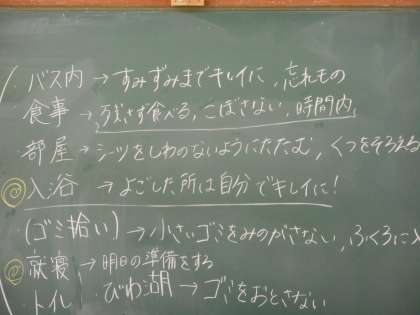 バス内→すみずみまでキレイに、忘れもの
食事→残さず食べる、こぼさない、時間内、
部屋→シーツをしわのないようにたたむ、くつをそろえる
◎入浴→よごした所は自分でキレイに！
(ゴミ拾い)→小さいゴミをみのがさない、ふくろに入
◎就寝→明日の準備をする
トイレ びわ湖→ゴミをおとさない